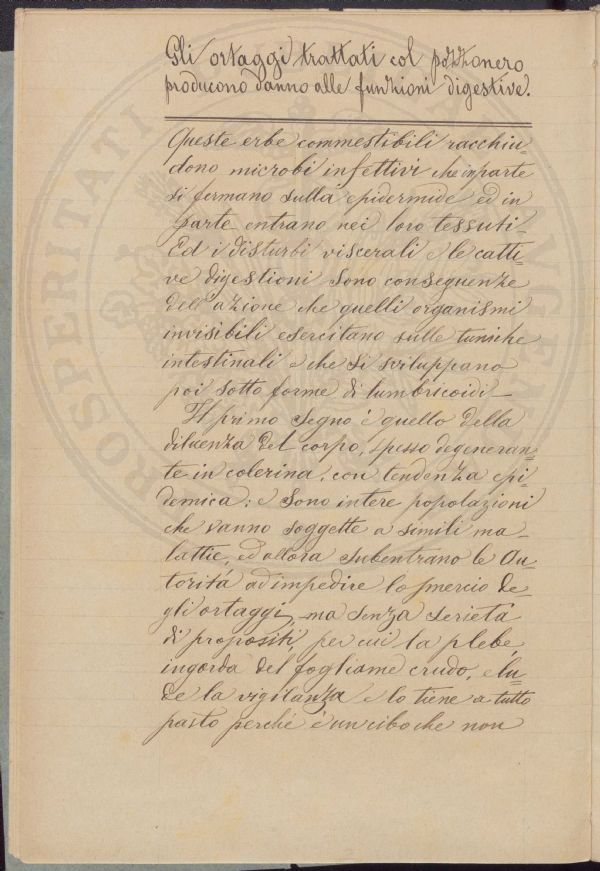 Gli ortaggi trattati col pozzonero
producono danno alle funzioni digestive.
Queste erbe commestibili racchiu-
dono microbi infettivi che in parte
si fermano sulla epidermide ed in
parte entrano nei loro tessuti-
Ed i disturbi viscerali e le catti-
ve digestioni sono conseguenze
dell'azione che quelli organismi
invisibili esercitano sulle tuniche
intestinali e che si sviluppano
poi sotto forme di lumbricoidi-
Il primo segno è quello della
diluenza del corpo, spesso degeneran-
te in colerina, con tendenza epi-
demica; e sono intere popolazioni
che vanno soggette a simili ma-
lattie, ed allora subentrano le Au-
torità ad impedire lo smercio de-
gli ortaggi, ma senza serietà
di propositi, per cui la plebe,
ingorda del fogliame crudo, elu-
de la vigilanza e lo tiene a tutto
pasto perchè è un cibo che non
PROSPERITATI
AUGEN